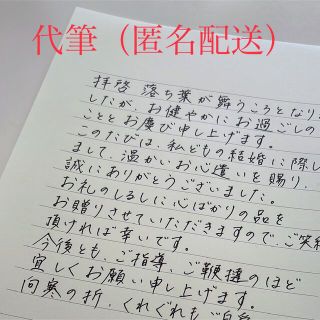 代筆（匿名配送）
拝啓 落ち葉が舞うころとなりま
したが、お健やかにお過ごしの
こととお慶び申し上げます。
このたびは、私どもの結婚に際し
まして、温かいお心遣いを賜り、
誠にありがとうございました。
お礼のしるしに心ばかりの品を
お贈りさせていただきますので、ご笑納
頂ければ幸いです。
今後とも、ご指導、ご鞭撻のほど
宜しくお願い申し上げます。
向寒の折、くれぐれもご自